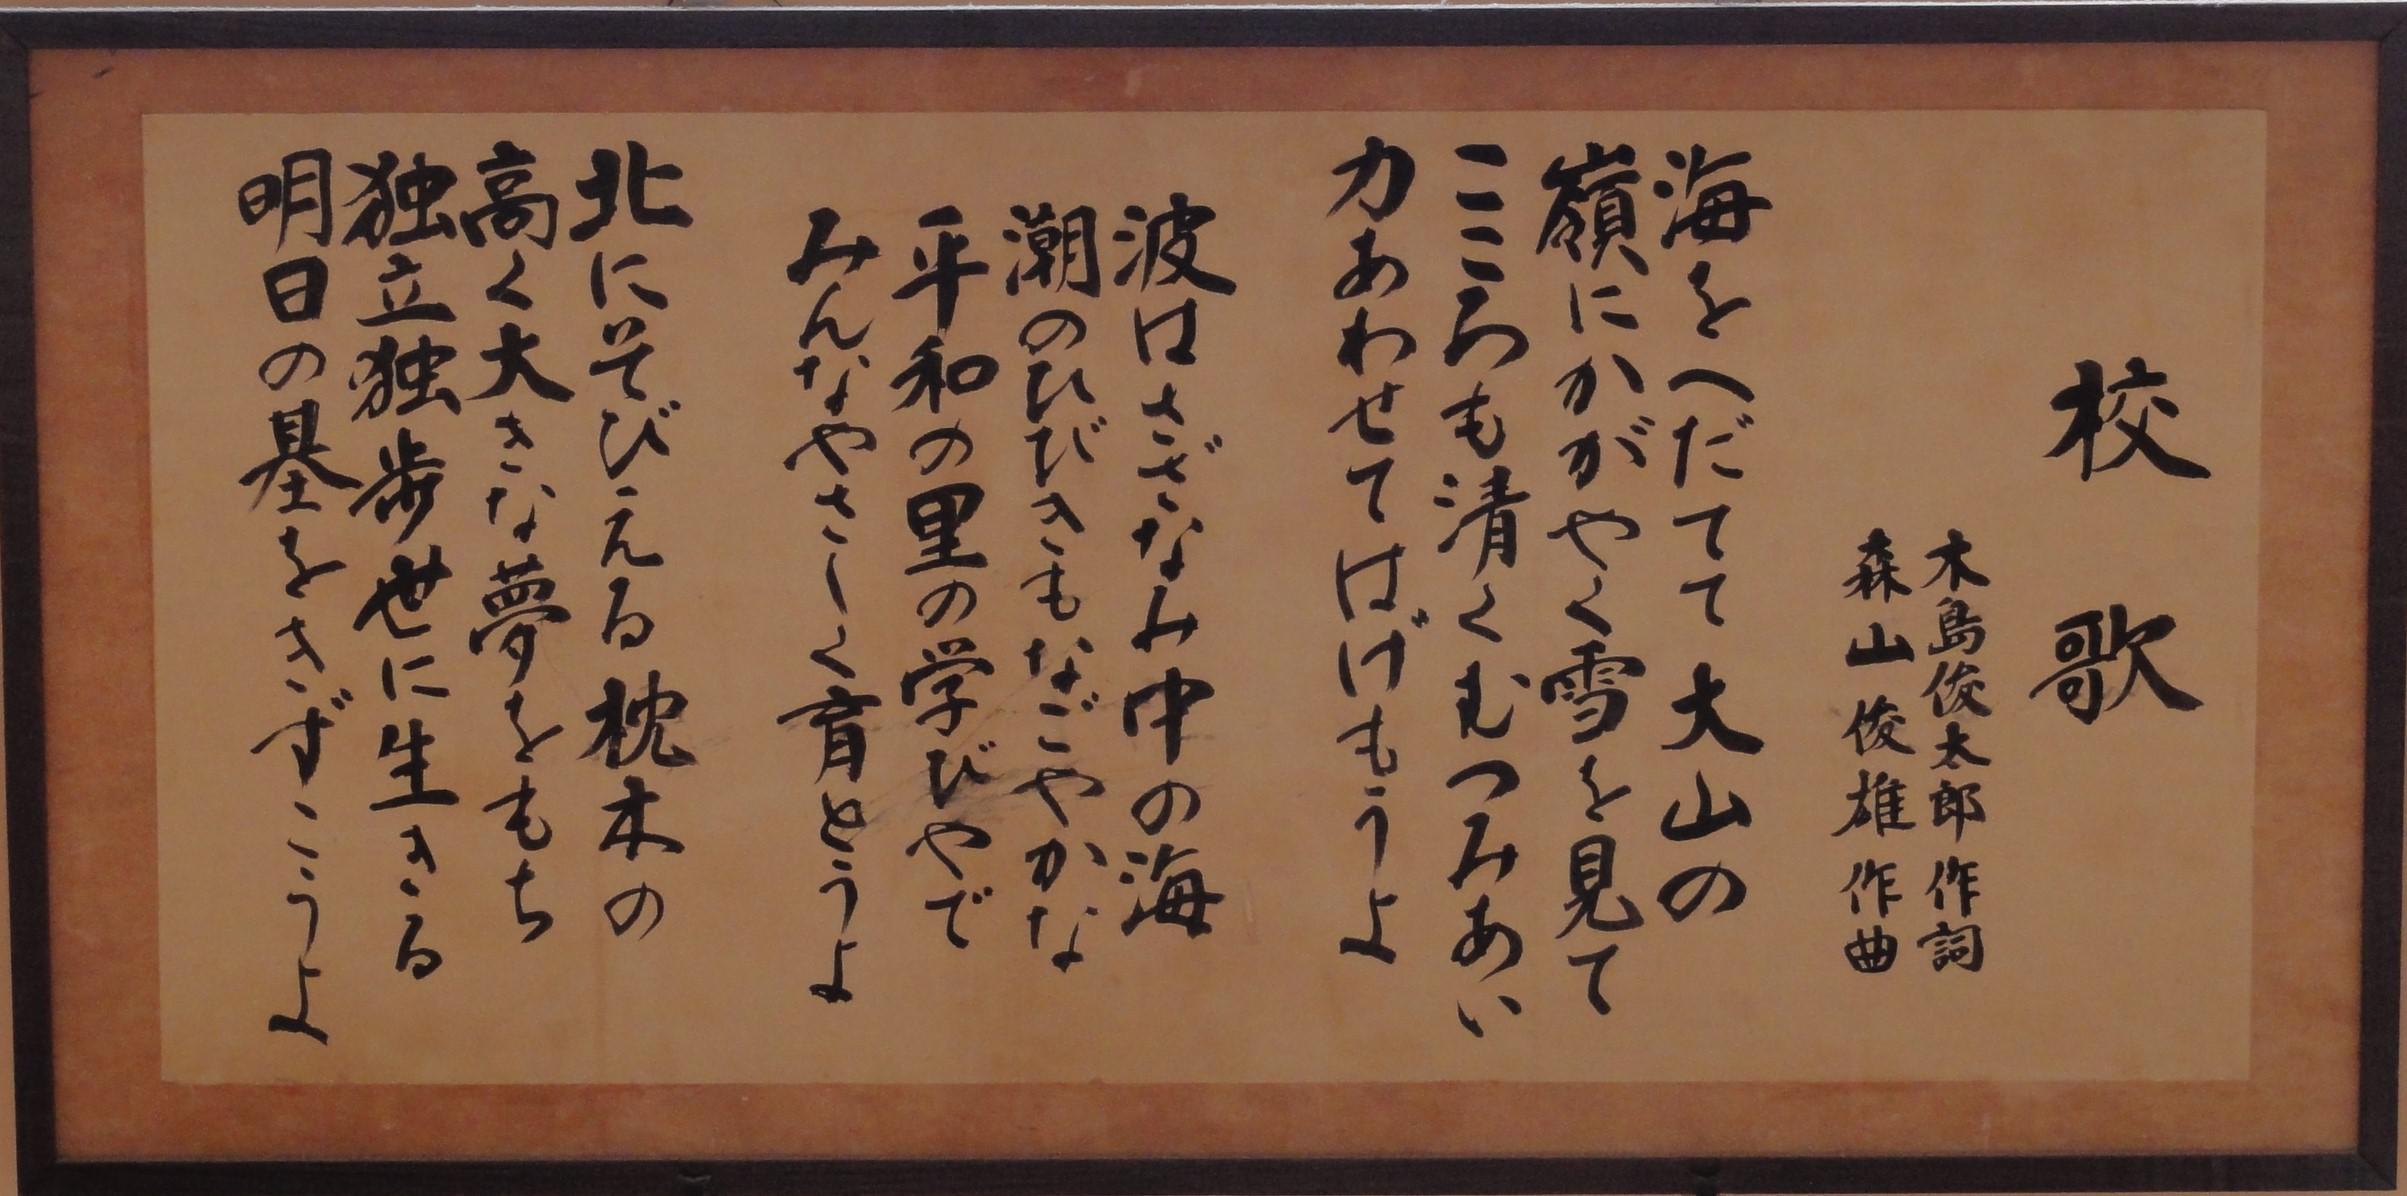 校歌
木島俊太郎作詞
森山俊雄作曲
海をへだてて大山の
嶺にかがやく雪を見て
こころも清くむつみあい
力あわせてはげもうよ
波はさざなみ中の海
潮のひびきもなごやかな
平和の里の学びやで
みんなやさしく育とうよ
北にそびえる枕木の
高く大きな夢をもち
独立独歩世に生きる
明日の基をきずこうよ